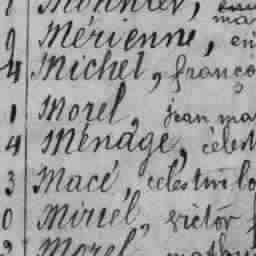 1 Monnier,
9 Mérienne, em
4 Michel, franço
1 Morel, jean ma
4 Ménage, célest
3 Macé, celestin lo
0 Miriel, victor f
2 Morel, mathu